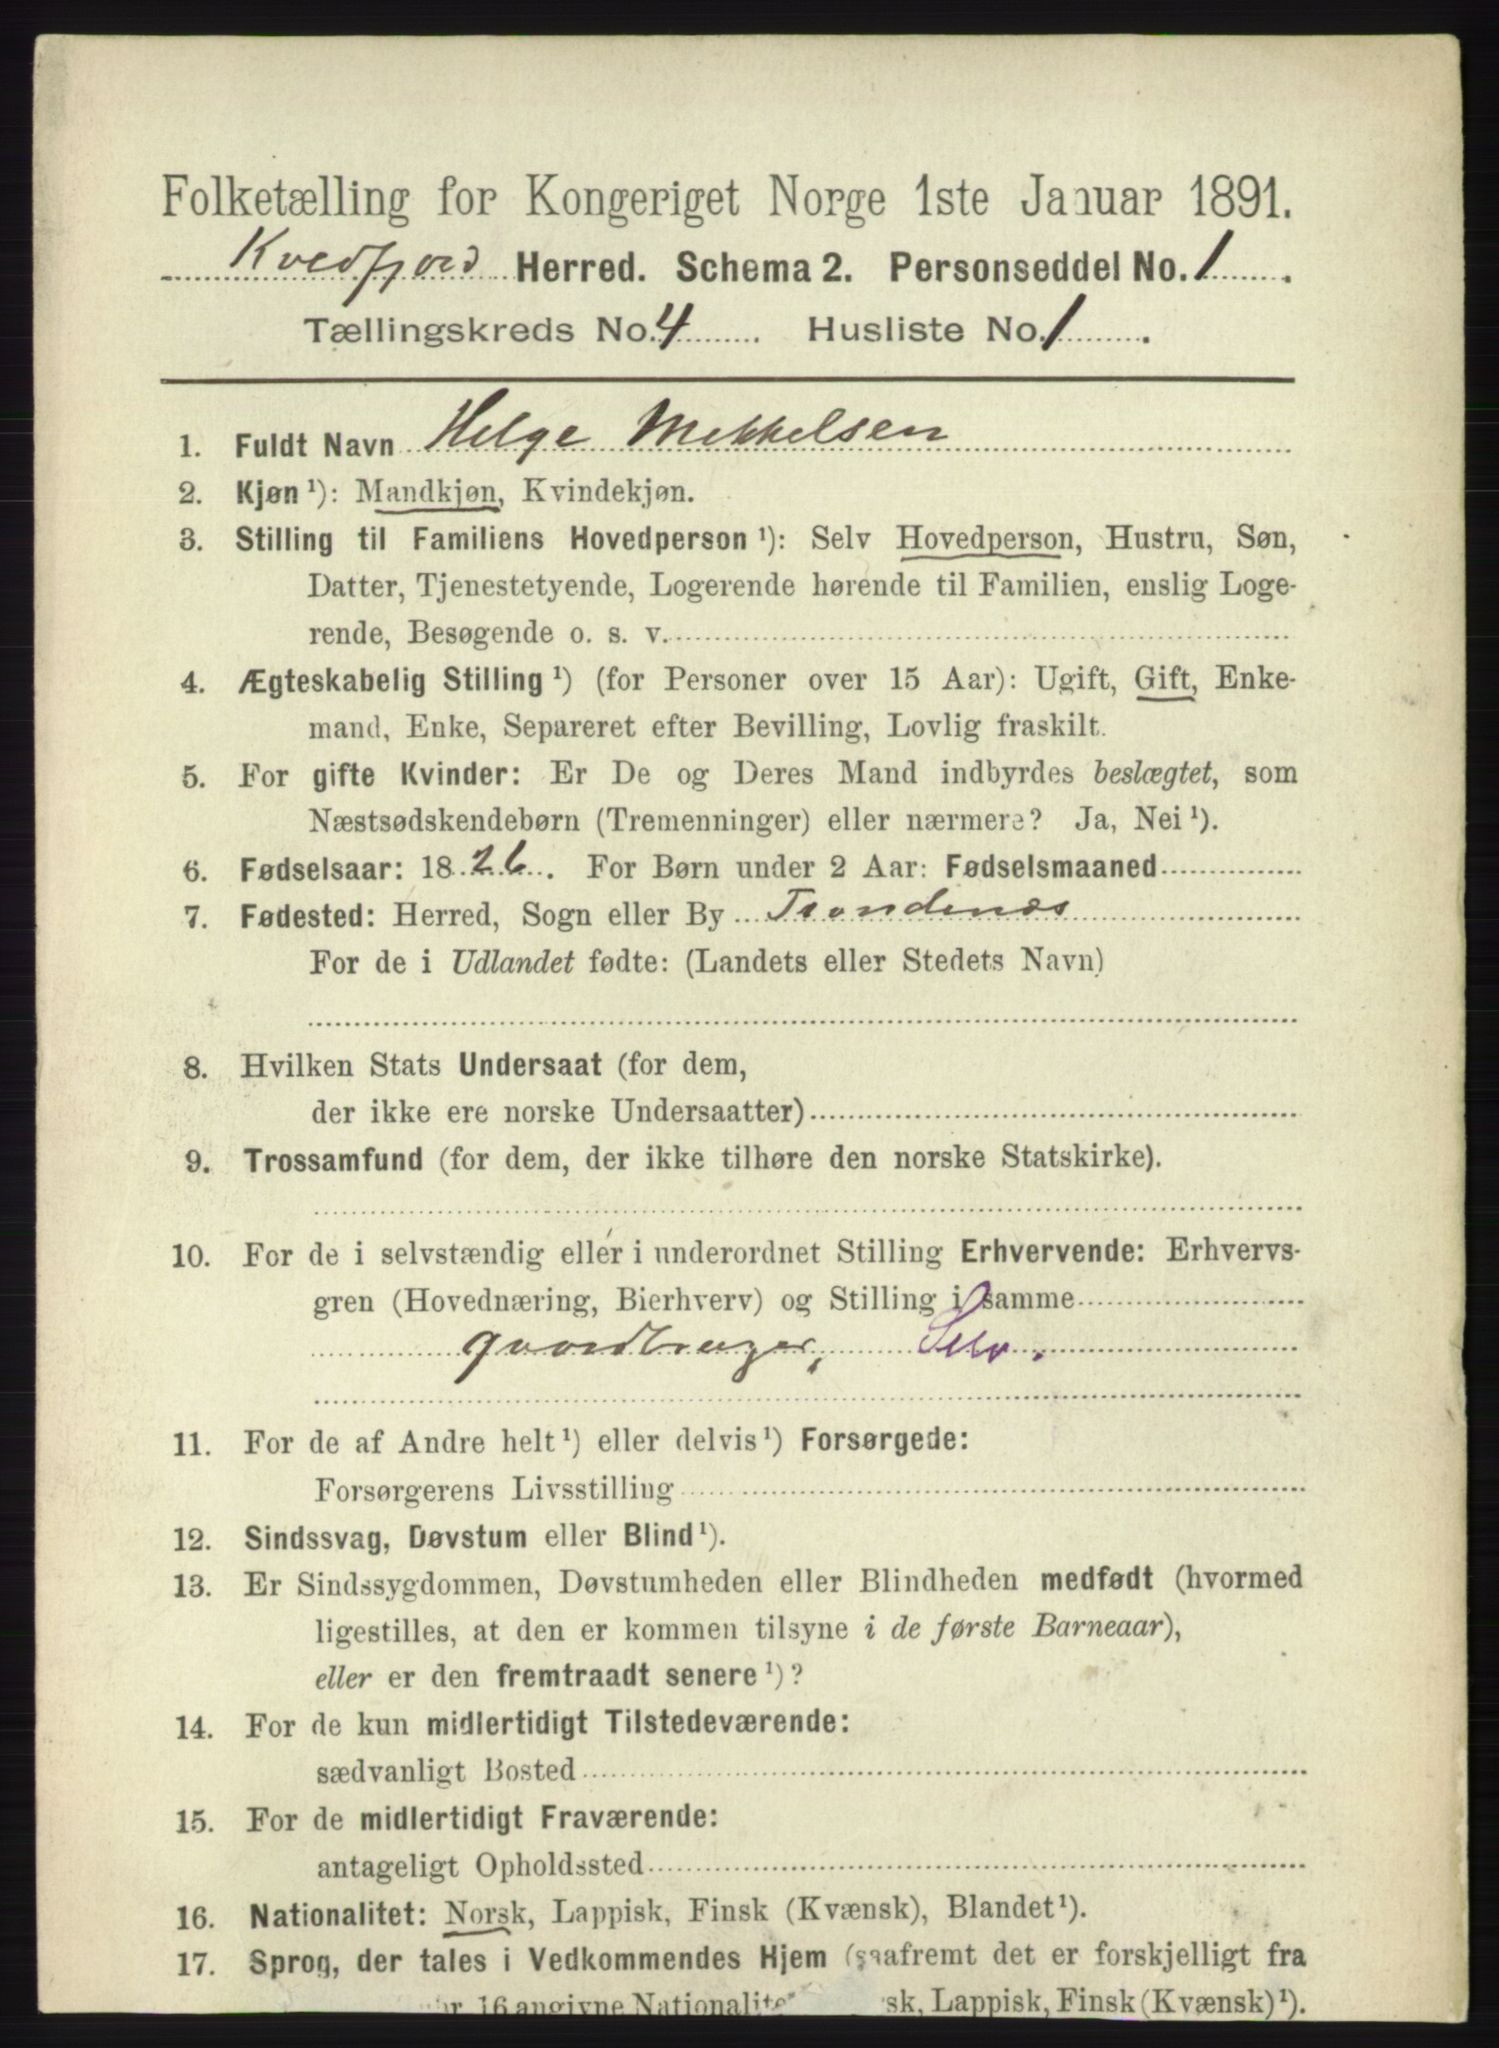 Folketælling for Kongeriget Norge 1ste Januar 1891.
Kvedfjord Herred. Schema 2. Personseddel No. 1.
Tællingskreds No. 4. Husliste No. 1.
1. Fuldt Navn Helge Mekkelsen
2. Kjøn ¹): Mandkjøn, Kvindekjøn.
3. Stilling til Familiens Hovedperson ¹): Selv Hovedperson, Hustru, Søn,
Datter, Tjenestetyende, Logerende hørende til Familien, enslig Loge-
rende, Besøgende o. s. v.
4. Ægteskabelig Stilling ¹) (for Personer over 15 Aar): Ugift, Gift, Enke-
mand, Enke, Separeret efter Bevilling, Lovlig fraskilt.
5. For gifte Kvinder: Er De og Deres Mand indbyrdes beslægtet, som
Næstsødskendebørn (Tremenninger) eller nærmere? Ja, Nei ¹).
6. Fødselsaar: 1826. For Børn under 2 Aar: Fødselsmaaned
7. Fødested: Herred, Sogn eller By Trondenæs
For de i Udlandet fødte: (Landets eller Stedets Navn)
8. Hvilken Stats Undersaat (for dem,
der ikke ere norske Undersaatter)
9. Trossamfund (for dem, der ikke tilhøre den norske Statskirke).
10. For de i selvstændig eller i underordnet Stilling Erhvervende: Erhvervs-
gren (Hovednæring, Bierhverv) og Stilling i samme
gaardbruger, Selv.
11. For de af Andre helt ¹) eller delvis ¹) Forsørgede:
Forsørgerens Livsstilling
12. Sindssvag, Døvstum eller Blind ¹).
13. Er Sindssygdommen, Døvstumheden eller Blindheden medfødt (hvormed
ligestilles, at den er kommen tilsyne i de første Barneaar),
eller er den fremtraadt senere ¹)?
14. For de kun midlertidigt Tilstedeværende:
sædvanligt Bosted
15. For de midlertidigt Fraværende:
antageligt Opholdssted
16. Nationalitet: Norsk, Lappisk, Finsk (Kvænsk), Blandet ¹).
17. Sprog, der tales i Vedkommendes Hjem (saafremt det er forskjelligt fra
16 angivne Nationalite sk, Lappisk, Finsk (Kvænsk) ¹).